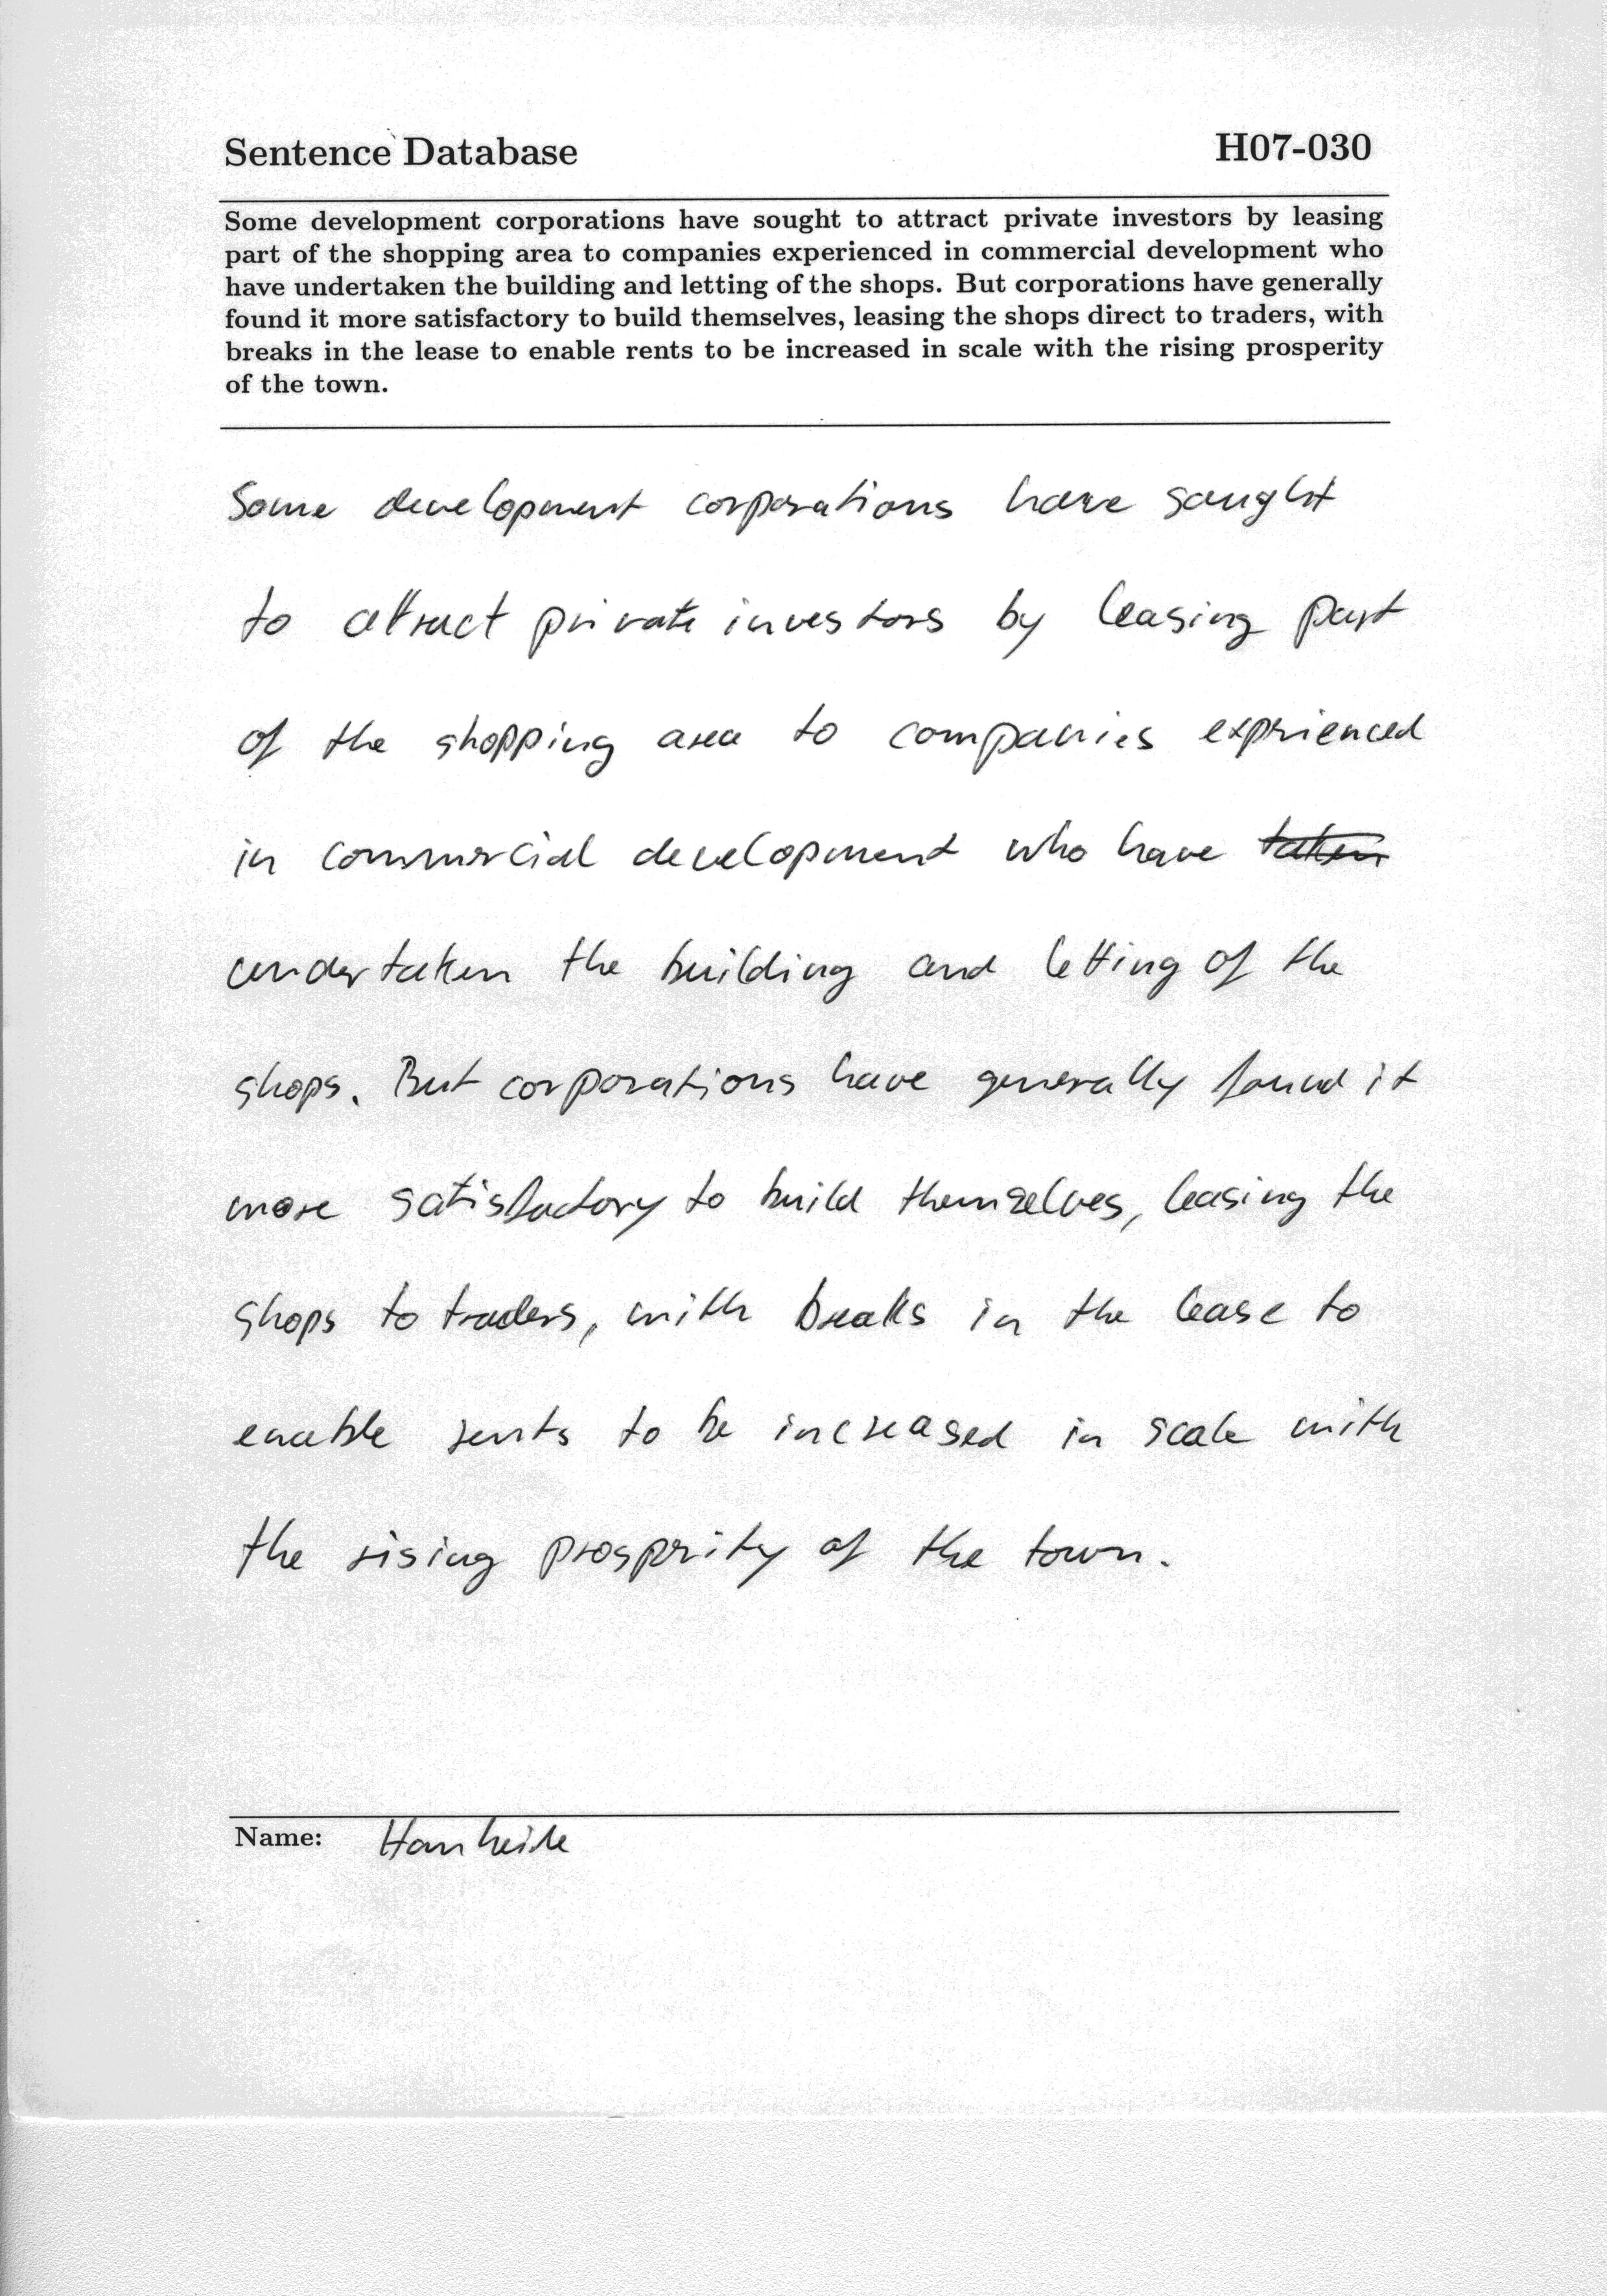 Sentence Database H07-030
Some development corporations have sought to attract private investors by leasing
part of the shopping area to companies experienced in commercial development who
have undertaken the building and letting of the shops. But corporations have generally
found it more satisfactory to build themselves, leasing the shops direct to traders, with
breaks in the lease to enable rents to be increased in scale with the rising prosperity
of the town.
Some development corporations have sought
to attract private investors by leasing part
of the shopping area to companies exprienced
in commercial development who have taken
undertaken the building and letting of the
shops. But corporations have generally found it
more satisfactory to build themselves, leasing the
shops to traders, with breaks in the lease to
enable rents to be increased in scale with
the rising prosprity of the town.
Name: Hanheide